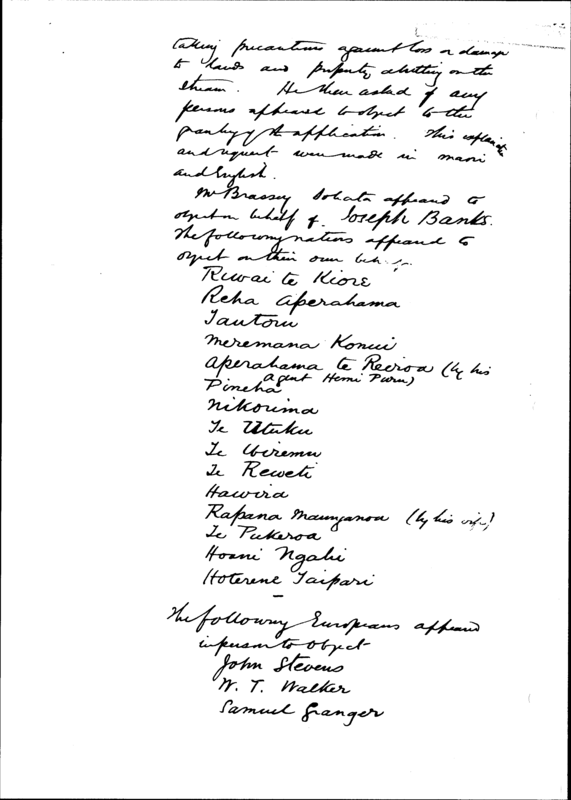 taking precautions against loss or damage
to lands and property abutting on the
stream. He then asked if any
persons appeared to object to the
granting of the application. This explanation
and request were made in maori
and English.
Mr Brassey Solicitor appeared to
object on behalf of Joseph Banks.
The following natives appeared to
object on their own
Riwai te Kiore
Reha Aperahama
Tautoru
Meremana Konui
Aperahama te Reiroa (by his
agent Hemi Puru)
Pineha
Nikorima
Te Utuku
Te Wiremu
Te Reweti
Hawira
Rapana Maunganoa (by his wife)
Te Pukeroa
Hoani Ngahi
Hoterene Taipari
The following Europeans appeared
in person to object
John Stevens
W. T. Walker
Samuel Granger